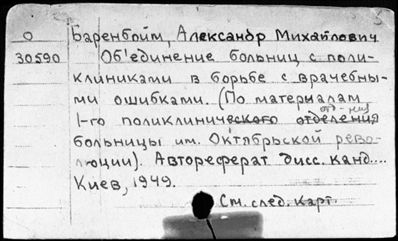 О Баренбойм, Александр Михайлович
30590 Об'единение больниц с поли-
клиниками в борьбе с врачебны-
ми ошибками. (По материалам
от-ния
1-го поликлинического отделения
больницы им. Октябрьской рево-
люции). Автореферат дисс. канд....
Киев, 1949.
См. след. карт.